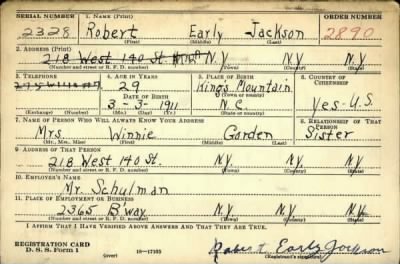 SERIAL NUMBER 1. NAME (Print) ORDER NUMBER
2328 Robert Early Jackson 2890
(First) (Middle) (Last)
2. ADDRESS (Print)
218 West 140 St. N.Y. N.Y. N.Y.
(Number and street or R. F. D. number) (Town) (County) (State)
3. TELEPHONE 4. AGE IN YEARS 5. PLACE OF BIRTH 6. COUNTRY OF CITIZENSHIP
29 Kings Mountain
DATE OF BIRTH (Town or county)
3-3-1911 N.C. Yes-U.S.
(Exchange) (Number) (Mo.) (Day) (Yr.) (State or country)
7. NAME OF PERSON WHO WILL ALWAYS KNOW YOUR ADDRESS 8. RELATIONSHIP OF THAT PERSON
Mrs Winnie Gorden Sister
(Mr., Mrs., Miss) (First) (Middle) (Last)
9. ADDRESS OF THAT PERSON
218 West 140 St. N.Y. N.Y. N.Y.
(Number and street or R. F. D. number) (Town) (County) (State)
10. EMPLOYER'S NAME
Mr. Schulman
11. PLACE OF EMPLOYMENT OR BUSINESS
2365 B'way. N.Y. N.Y. N.Y.
(Number and street or R. F. D. number) (Town) (County) (State)
I AFFIRM THAT I HAVE VERIFIED ABOVE ANSWERS AND THAT THEY ARE TRUE.
REGISTRATION CARD
D. S. S. Form 1 (over) 16—17105 Robert Early Jackson
(Registrant's signature)